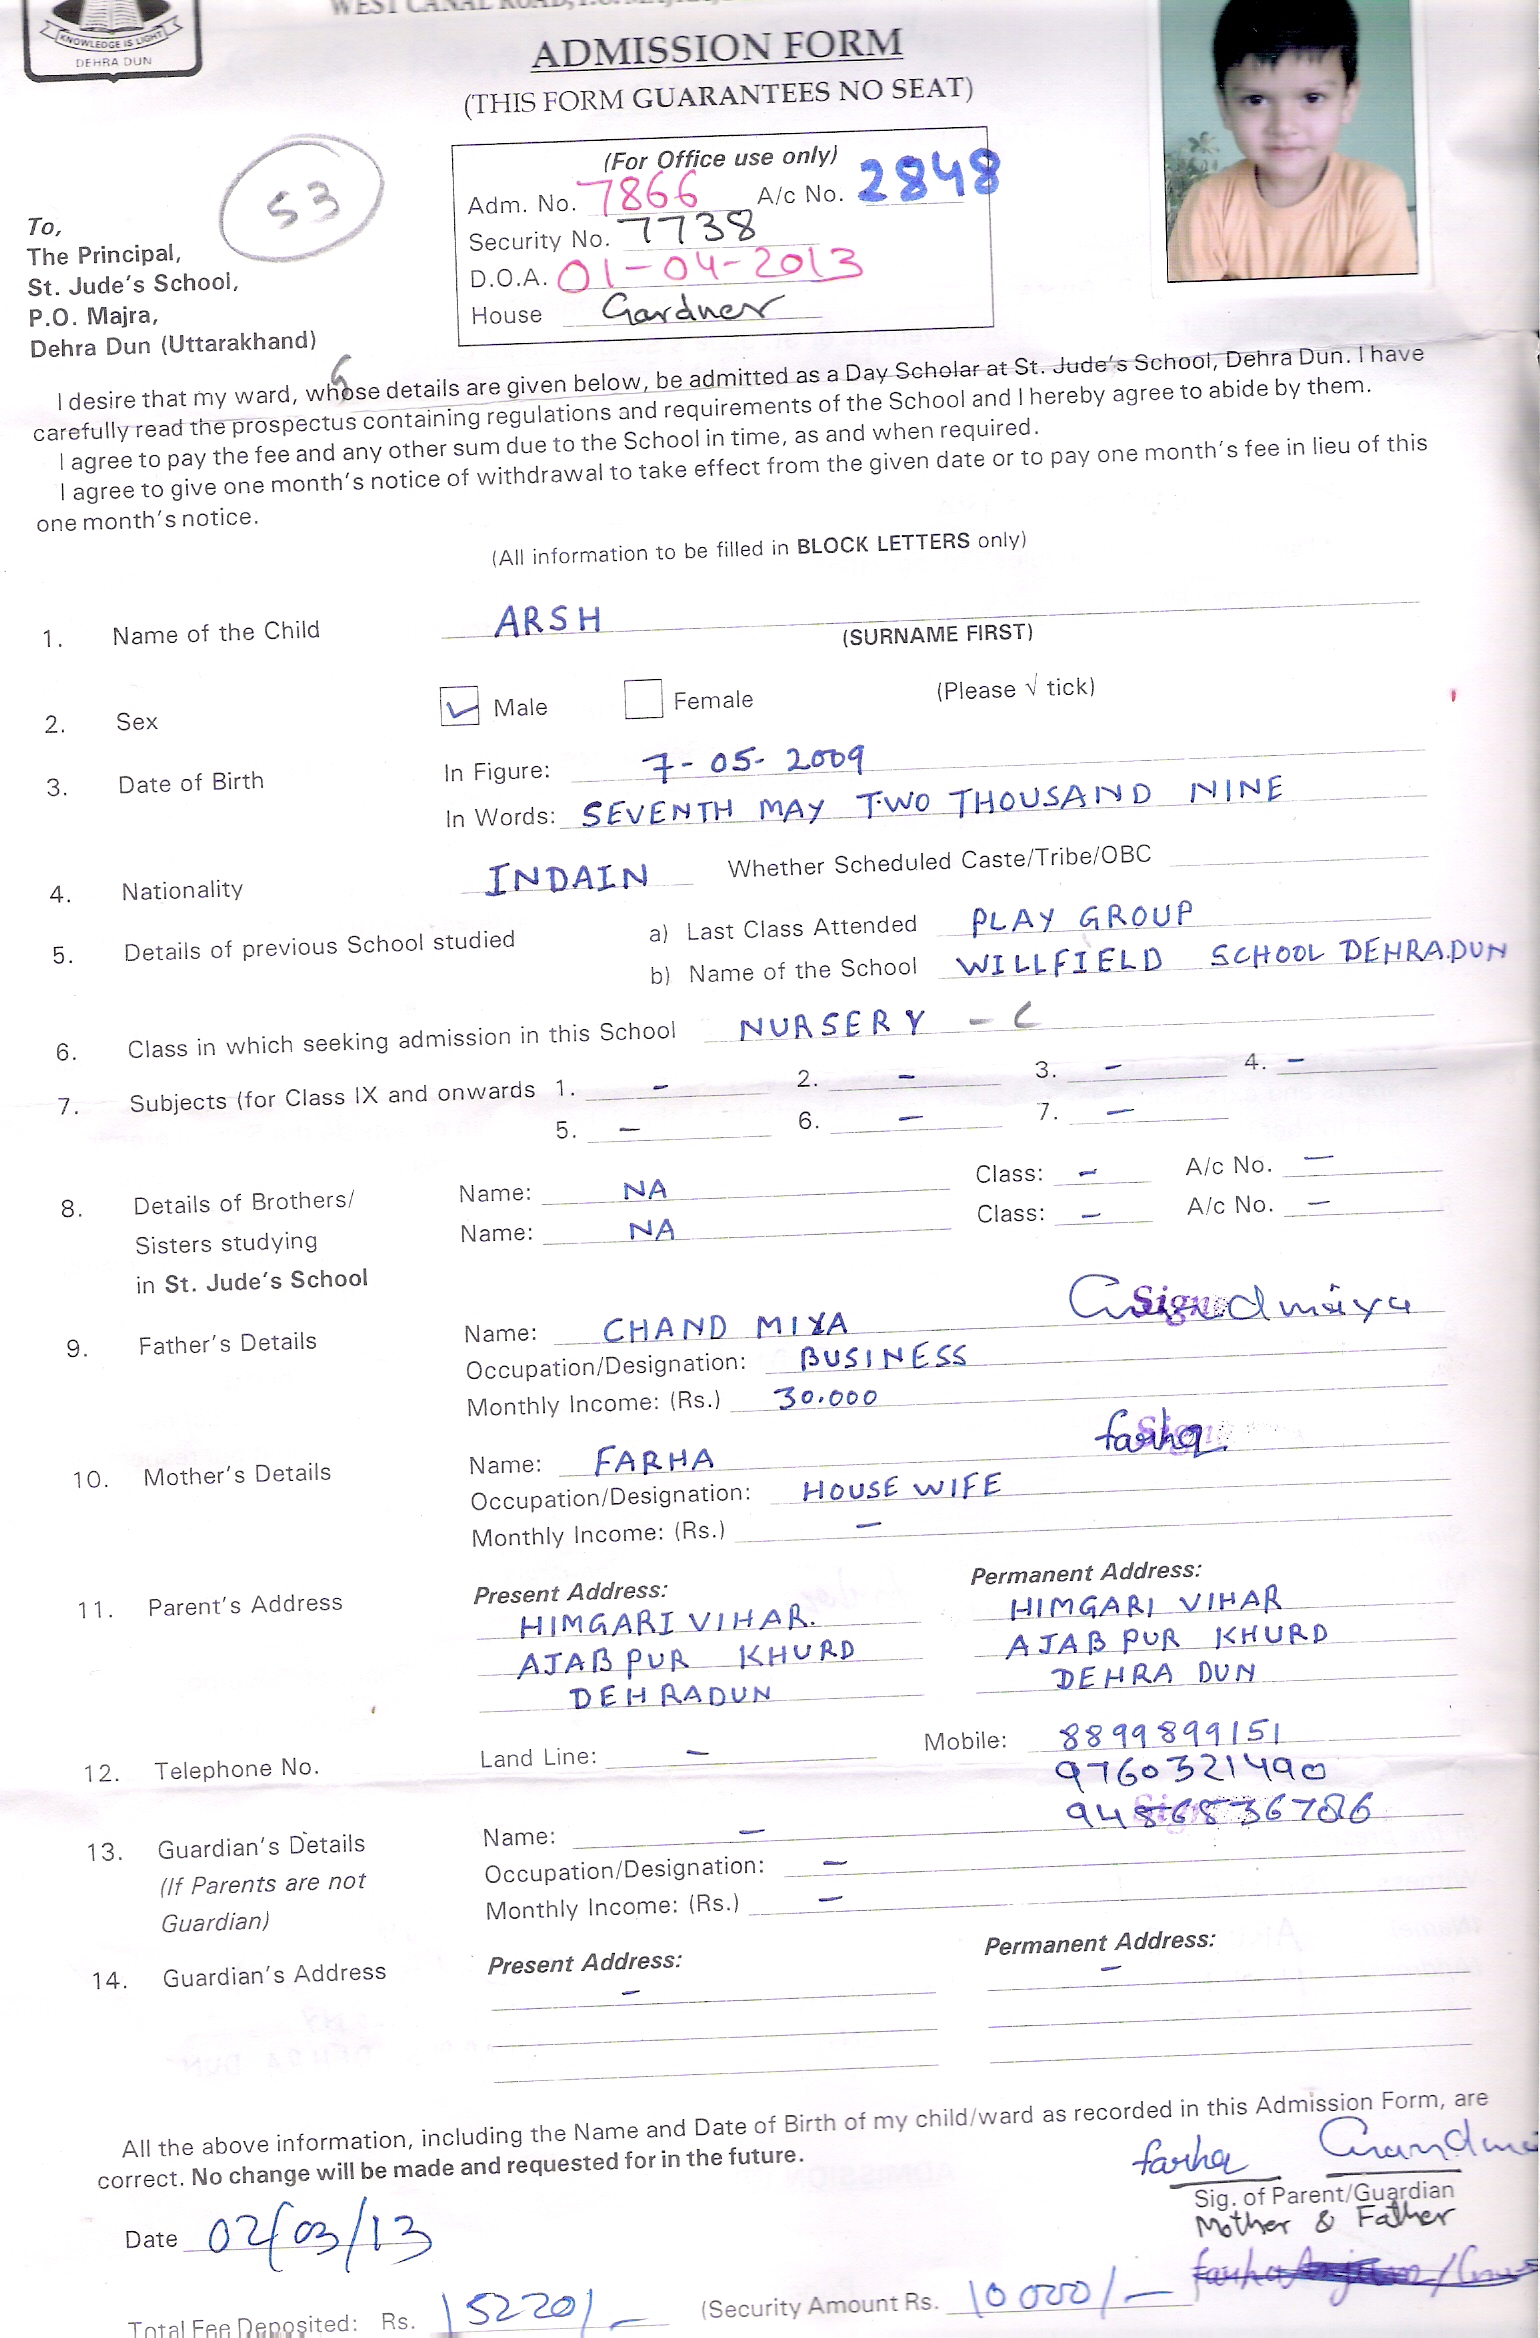 KNOWLEDGE IS LIGHT
DEHRA DUN
ADMISSION FORM
(THIS FORM GUARANTEES NO SEAT)
53
(For Office use only)
Adm. No. 7866 A/c No. 2848
Security No. 7738
D.O.A. 01-04-2013
House Gardner
To,
The Principal,
St. Jude's School,
P.O. Majra,
Dehra Dun (Uttarakhand)
I desire that my ward, whose details are given below, be admitted as a Day Scholar at St. Jude's School, Dehra Dun. I have
carefully read the prospectus containing regulations and requirements of the School and I hereby agree to abide by them.
I agree to pay the fee and any other sum due to the School in time, as and when required.
I agree to give one month's notice of withdrawal to take effect from the given date or to pay one month's fee in lieu of this
one month's notice.
(All information to be filled in BLOCK LETTERS only)
1. Name of the Child ARSH
(SURNAME FIRST)
2. Sex Male Female (Please √ tick)
3. Date of Birth In Figure: 7-05-2009
In Words: SEVENTH MAY TWO THOUSAND NINE
4. Nationality INDAIN Whether Scheduled Caste/Tribe/OBC
5. Details of previous School studied a) Last Class Attended PLAY GROUP
b) Name of the School WILLFIELD SCHOOL DEHRADUN
6. Class in which seeking admission in this School NURSERY - C
7. Subjects (for Class IX and onwards 1. - 2. - 3. - 4. -
5. - 6. - 7. -
8. Details of Brothers/ Name: NA Class: - A/c No. -
Sisters studying Name: NA Class: - A/c No. -
in St. Jude's School
9. Father's Details Name: CHAND MIYA Sign Chandmiya
Occupation/Designation: BUSINESS
Monthly Income: (Rs.) 30.000
10. Mother's Details Name: FARHA Sign farha
Occupation/Designation: HOUSE WIFE
Monthly Income: (Rs.) -
11. Parent's Address Present Address: Permanent Address:
HIMGARI VIHAR. HIMGARI VIHAR
AJABPUR KHURD AJABPUR KHURD
DEHRADUN DEHRA DUN
12. Telephone No. Land Line: - Mobile: 8899899151
9760321490
13. Guardian's Details Name: - Sign 9486836786
(If Parents are not Occupation/Designation: -
Guardian) Monthly Income: (Rs.) -
14. Guardian's Address Present Address: - Permanent Address: -
All the above information, including the Name and Date of Birth of my child/ward as recorded in this Admission Form, are
correct. No change will be made and requested for in the future.
farha Chandmi
Sig. of Parent/Guardian
Mother & Father
Date 02/03/13
farha
Total Fee Deposited: Rs. 15220/- (Security Amount Rs. 10000/-